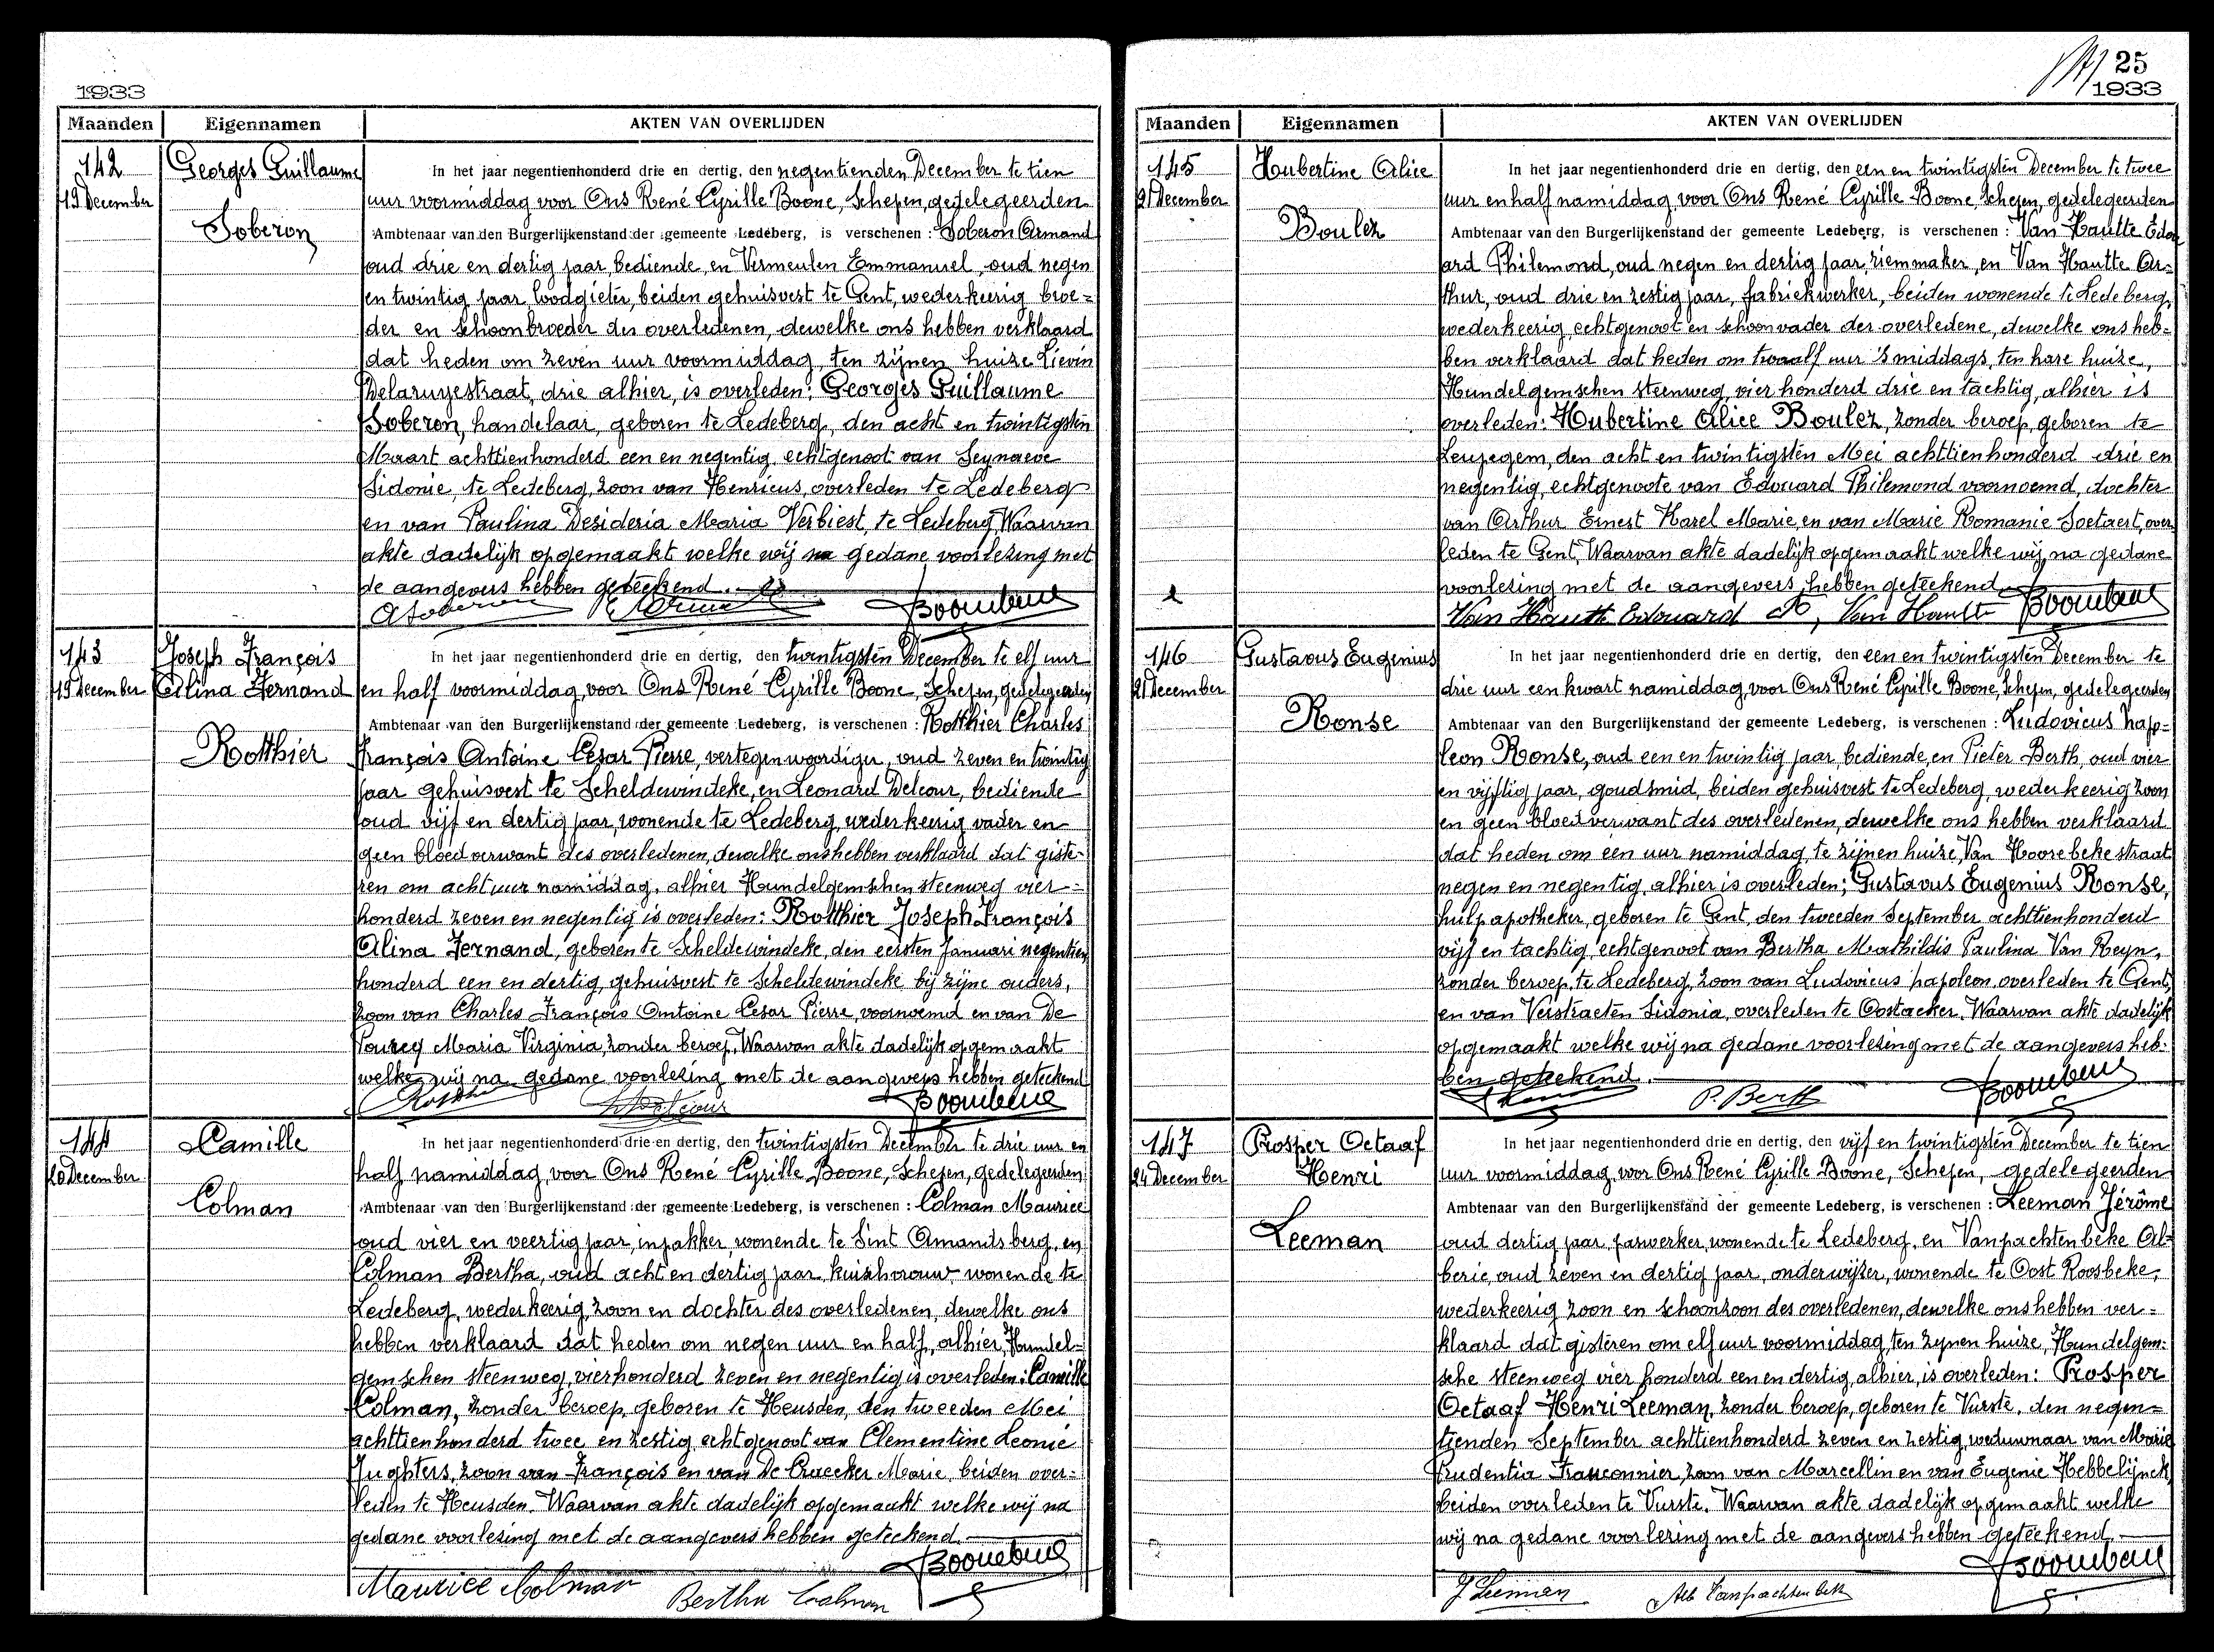 1933
Maanden Eigennamen AKTEN VAN OVERLIJDEN
142
19 December
Georges Guillaume
Soberon
In het jaar negentienhonderd drie en dertig, den negentienden December te tien
uur voormiddag voor Ons René Cyrille Boone, Schepen, gedelegeerden
Ambtenaar van den Burgerlijkenstand der gemeente Ledeberg, is verschenen : Soberon Armand
oud drie en dertig jaar, bediende, en Vermeulen Emmanuel, oud negen
en twintig jaar, loodgieter, beiden gehuisvest te Gent, wederkeerig broe=
der en schoonbroeder des overledenen, dewelke ons hebben verklaard
dat heden om zeven uur voormiddag, ten zijnen huize Lievin
Delaruyestraat, drie alhier, is overleden: Georges Guillaume
Soberon, handelaar, geboren te Ledeberg, den acht en twintigsten
Maart achttienhonderd een en negentig, echtgenoot van Seynaeve
Sidonie, te Ledeberg, zoon van Henricus, overleden te Ledeberg
en van Paulina Desideria Maria Verbiest, te Ledeberg, Waarvan
akte dadelijk opgemaakt welke wij na gedane voorlezing met
de aangevers hebben geteekend.
ASoberon Boone
143
19 December
Joseph François
Alina Fernand
Rotthier
In het jaar negentienhonderd drie en dertig, den twintigsten December te elf uur
en half voormiddag, voor Ons René Cyrille Boone, Schepen, gedelegeerden
Ambtenaar van den Burgerlijkenstand der gemeente Ledeberg, is verschenen : Rotthier Charles
François Antoine Cesar Pierre, vertegenwoordiger, oud zeven en twintig
jaar gehuisvest te Scheldewindeke, en Leonard Delcour, bediende
oud vijf en dertig jaar, wonende te Ledeberg, wederkeerig vader en
geen bloedverwant des overledenen, dewelke ons hebben verklaard dat giste-
ren om acht uur namiddag, alhier Hundelgemschen steenweg vier=
honderd zeven en negentig is overleden: Rotthier Joseph François
Alina Fernand, geboren te Scheldewindeke, den eersten Januari negentien
honderd een en dertig, gehuisvest te Scheldewindeke bij zijne ouders,
zoon van Charles François Antoine Cesar Pierre, voornoemd en van De
Pourcq Maria Virginia, zonder beroep. Waarvan akte dadelijk opgemaakt
welke wij na gedane voorlezing met de aangevers hebben geteekend
Rotthier Delcour Boone
144
20 December
Camille
Colman
In het jaar negentienhonderd drie en dertig, den twintigsten December te drie uur en
half namiddag voor Ons René Cyrille Boone, Schepen, gedelegeerden
Ambtenaar van den Burgerlijkenstand der gemeente Ledeberg, is verschenen : Colman Maurice
oud vier en veertig jaar, inpakker, wonende te Sint Amandsberg, en
Colman Bertha, oud acht en dertig jaar, kuischvrouw wonende te
Ledeberg, wederkeerig zoon en dochter des overledenen, dewelke ons
hebben verklaard dat heden om negen uur en half, alhier, Hundel=
gemschen steenweg, vierhonderd zeven en negentig is overleden: Camille
Colman, zonder beroep, geboren te Heusden, den tweeden Mei
achttienhonderd twee en zestig echtgenoot van Clementine Leonie
Jughters, zoon van François en van De Craecker Marie, beiden over=
leden te Heusden. Waarvan akte dadelijk opgemaakt welke wij na
gedane voorlezing met de aangevers hebben geteekend.
Maurice Colman Bertha Colman Boone
25
1933
Maanden Eigennamen AKTEN VAN OVERLIJDEN
145
21 December
Hubertine Alice
Boulez
In het jaar negentienhonderd drie en dertig, den een en twintigsten December te twee
uur en half namiddag, voor Ons René Cyrille Boone, Schepen, gedelegeerden
Ambtenaar van den Burgerlijkenstand der gemeente Ledeberg, is verschenen : Van Hautte Edou
ard Philemond, oud negen en dertig jaar, riemmaker, en Van Hautte Ar=
thur, oud drie en zestig jaar, fabriekwerker, beiden wonende te Ledeberg,
wederkeerig echtgenoot en schoonvader der overledene, dewelke ons heb=
ben verklaard dat heden om twaalf uur 's middags, ten hare huize,
Hundelgemschen steenweg, vier honderd drie en tachtig, alhier is
overleden: Hubertine Alice Boulez, zonder beroep, geboren te
Leupegem, den acht en twintigsten Mei achttienhonderd drie en
negentig, echtgenoote van Edouard Philemond voornoemd, dochter
van Arthur Ernest Karel Marie, en van Marie Romanie Soetaert, over
leden te Gent, Waarvan akte dadelijk opgemaakt welke wij na gedane
voorlezing met de aangevers hebben geteekend
Van Hautte Edouard Van Hautte Boone
146
21 December
Gustavus Eugenius
Ronse
In het jaar negentienhonderd drie en dertig, den een en twintigsten December te
drie uur een kwart namiddag, voor Ons René Cyrille Boone, Schepen, gedelegeerden
Ambtenaar van den Burgerlijkenstand der gemeente Ledeberg, is verschenen : Ludovicus Napo=
leon Ronse, oud een en twintig jaar, bediende, en Pieter Berth, oud vier
en vijftig jaar, goudsmid, beiden gehuisvest te Ledeberg, wederkeerig zoon
en geen bloedverwant des overledenen, dewelke ons hebben verklaard
dat heden om één uur namiddag, te zijnen huize, Van Hoorebekestraat
negen en negentig, alhier is overleden; Gustavus Eugenius Ronse,
hulpapotheker, geboren te Gent, den tweeden September achttienhonderd
vijf en tachtig, echtgenoot van Bertha Mathildis Paulina Van Reyn,
zonder beroep, te Ledeberg, zoon van Ludovicus Napoleon, overleden te Gent,
en van Verstraeten Sidonia, overleden te Oostacker. Waarvan akte dadelijk
opgemaakt welke wij na gedane voorlezing met de aangevers heb=
ben geteekend.
P. Berth Boone
147
24 December
Prosper Octaaf
Henri
Leeman
In het jaar negentienhonderd drie en dertig, den vijf en twintigsten December te tien
uur voormiddag, voor Ons René Cyrille Boone, Schepen, gedelegeerden
Ambtenaar van den Burgerlijkenstand der gemeente Ledeberg, is verschenen : Leeman Jérôme
oud dertig jaar, gaswerker, wonende te Ledeberg, en Vanpachtenbeke Al=
beric, oud zeven en dertig jaar, onderwijzer, wonende te Oost Roosbeke,
wederkeerig zoon en schoonzoon des overledenen, dewelke ons hebben ver=
klaard dat gisteren om elf uur voormiddag, ten zynen huize, Hundelgem=
sche steenweg vier honderd een en dertig, alhier, is overleden: Prosper
Octaaf Henri Leeman, zonder beroep, geboren te Vurste, den negen=
tienden September achttienhonderd zeven en zestig, weduwnaar van Marie
Prudentia Frauconnier, zoon van Marcellin en van Eugenie Hebbelijnck
beiden overleden te Vurste. Waarvan akte dadelijk opgemaakt welke
wij na gedane voorlezing met de aangevers hebben geteekend.
J Leeman Alb Vanpachtenbeke Boone